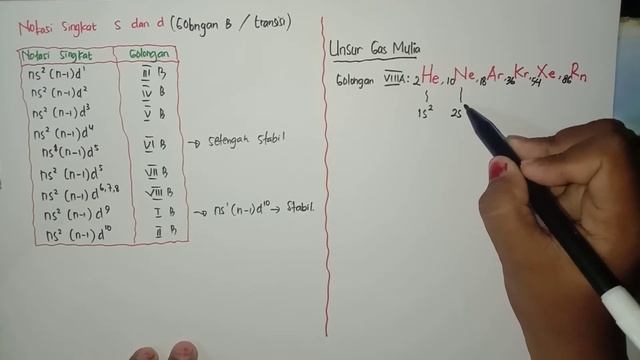 Notasi Singkat s dan d (Golongan B / transisi)
Notasi Singkat Golongan
ns² (n-1)d¹ III B
ns² (n-1)d² IV B
ns² (n-1)d³ V B
ns² (n-1)d⁴
ns¹(n-1)d⁵ VI B → setengah stabil
ns² (n-1)d⁵ VII B
ns² (n-1)d⁶,⁷,⁸ VIII B
ns² (n-1)d⁹ I B → ns¹ (n-1)d¹⁰ → stabil.
ns² (n-1)d¹⁰ II B
Unsur Gas Mulia
Golongan VIIIA : ₂He, ₁₀Ne, ₁₈Ar, ₃₆Kr, ₅₄Xe, ₈₆Rn
1s² 2s